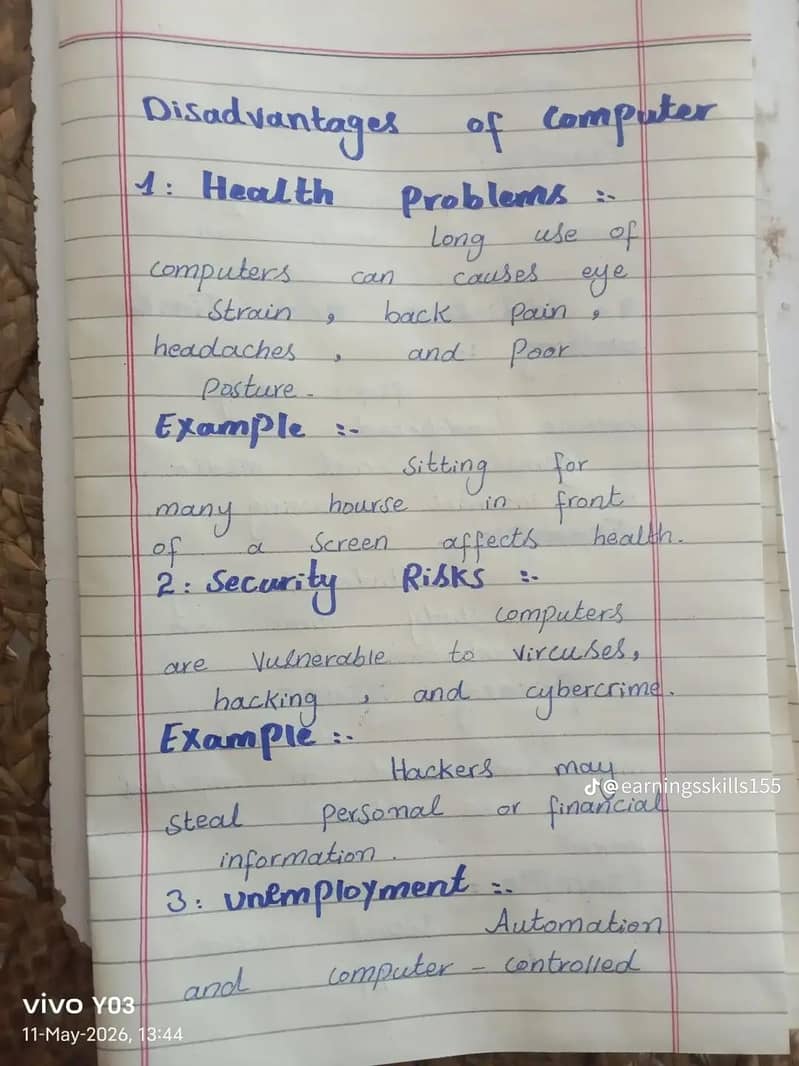 Disadvantages of computer
1: Health Problems :-
Long use of
computers can causes eye
strain, back pain,
headaches, and poor
posture.
Example :-
sitting for
many hourse in front
of a screen affects health.
2: Security Risks :-
computers
are vulnerable to vircuses,
hacking, and cybercrime.
Example :-
Hackers may
@earningsskills155
steal personal or financial
information.
3: unemployment :-
Automation
and computer - controlled
vivo Y03
11-May-2026, 13:44